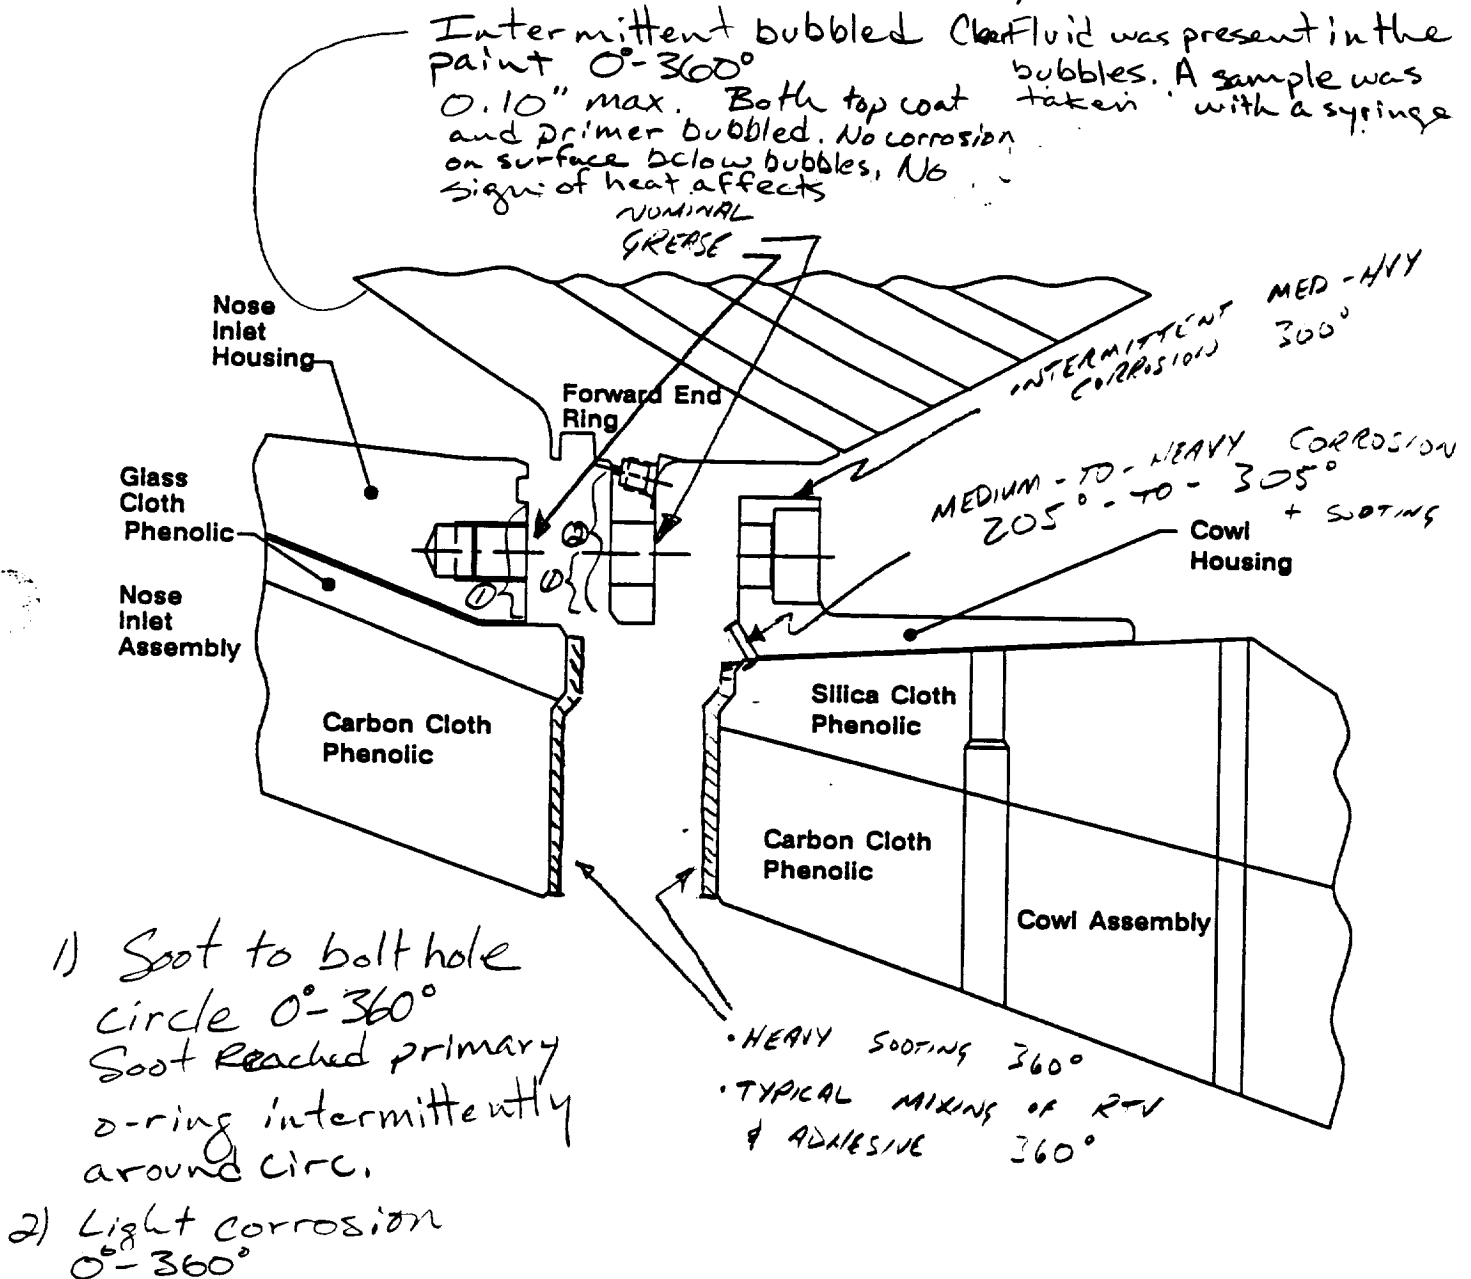 Intermittent bubbled
paint 0°-360°
0.10" max. Both top coat
and primer bubbled. No corrosion
on surface below bubbles, No
sign of heat affects
Clear Fluid was present in the
bubbles. A sample was
taken with a syringe
NOMINAL
GREASE
INTERMITTENT MED-HVY
CORROSION 300°
MEDIUM-TO-HEAVY CORROSION
205°-TO-305°
+ SOOTING
Nose
Inlet
Housing
Forward End
Ring
Glass
Cloth
Phenolic
Nose
Inlet
Assembly
1
2
1
Cowl
Housing
Carbon Cloth
Phenolic
Silica Cloth
Phenolic
Carbon Cloth
Phenolic
Cowl Assembly
1) Soot to bolt hole
circle 0°-360°
Soot Reached primary
o-ring intermittently
around circ.
2) Light corrosion
0°-360°
• HEAVY SOOTING 360°
• TYPICAL MIXING OF RTV
& ADHESIVE 360°